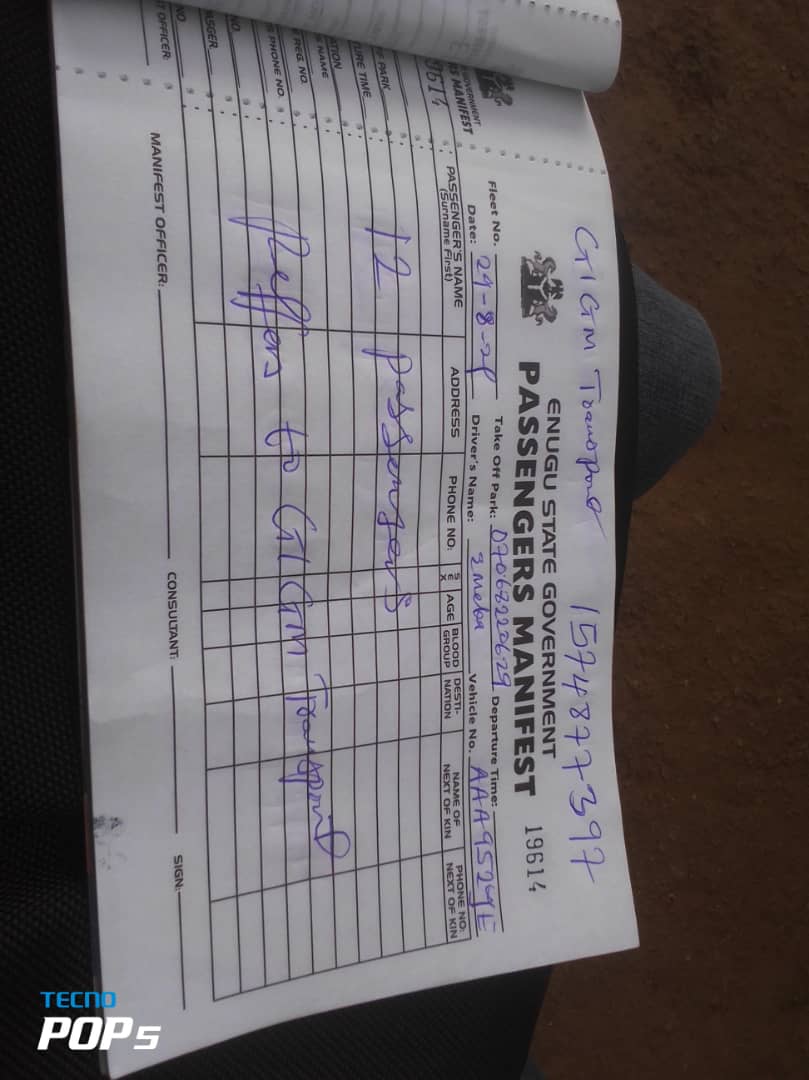 GIGM Transport 1574877397
ENUGU STATE GOVERNMENT
PASSENGERS MANIFEST 19614
Fleet No. Take Off Park: 07068220629 Departure Time:
Date: 29-8-24 Driver's Name: Emeka Vehicle No. AAA952YE
PASSENGER'S NAME (Surname First) ADDRESS PHONE NO: SEX AGE BLOOD GROUP DESTI-NATION NAME OF NEXT OF KIN PHONE NO: NEXT OF KIN
12 passengers
Reffers to GIGM Transport
MANIFEST OFFICER: CONSULTANT: SIGN:
GOVERNMENT
RS MANIFEST
9614
PARK
URE TIME
ATION
NAME
REG. NO.
PHONE NO.
NO.
NO.
T OFFICER:
TECNO
POP5